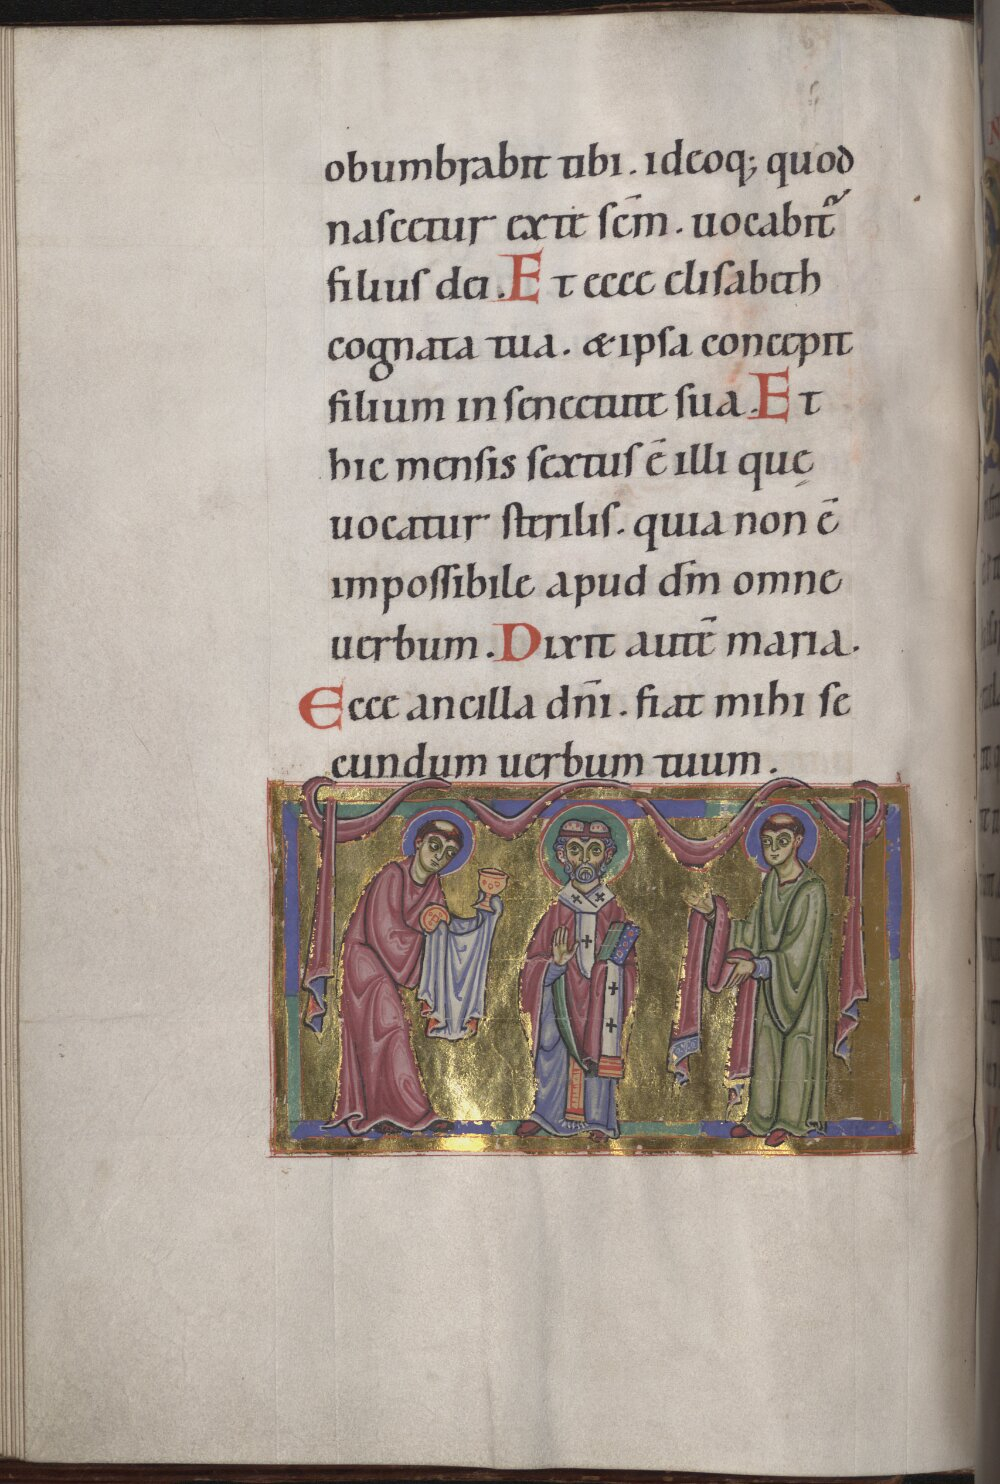 obumbrabit tibi. ideoq; quod
nascetur ex te scm̄. uocabit̾
filius dei. Et ecce elisabeth
cognata tua. & ipsa concepit
filium in senectute sua. Et
hic mensis sextus ē illi quę
uocatur sterilis. quia non ē
impossibile apud dm̄ omne
uerbum. Dixit autē maria.
Ecce ancilla dn̄i. fiat mihi se
cundum uerbum tuum.